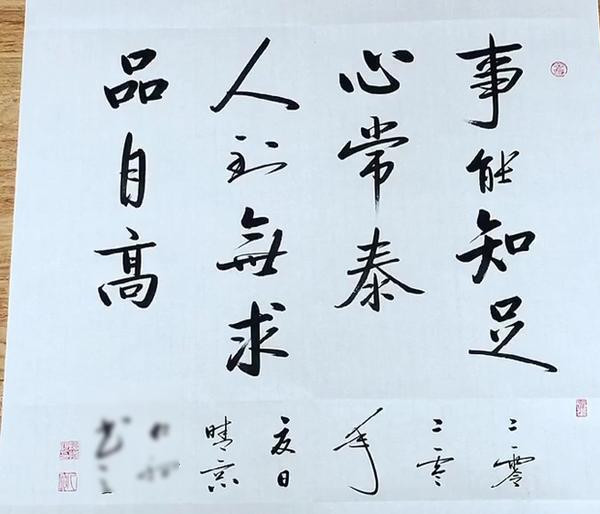 事能知足
心常泰
人到無求
品自高
二零
二零
年
夏日
晴